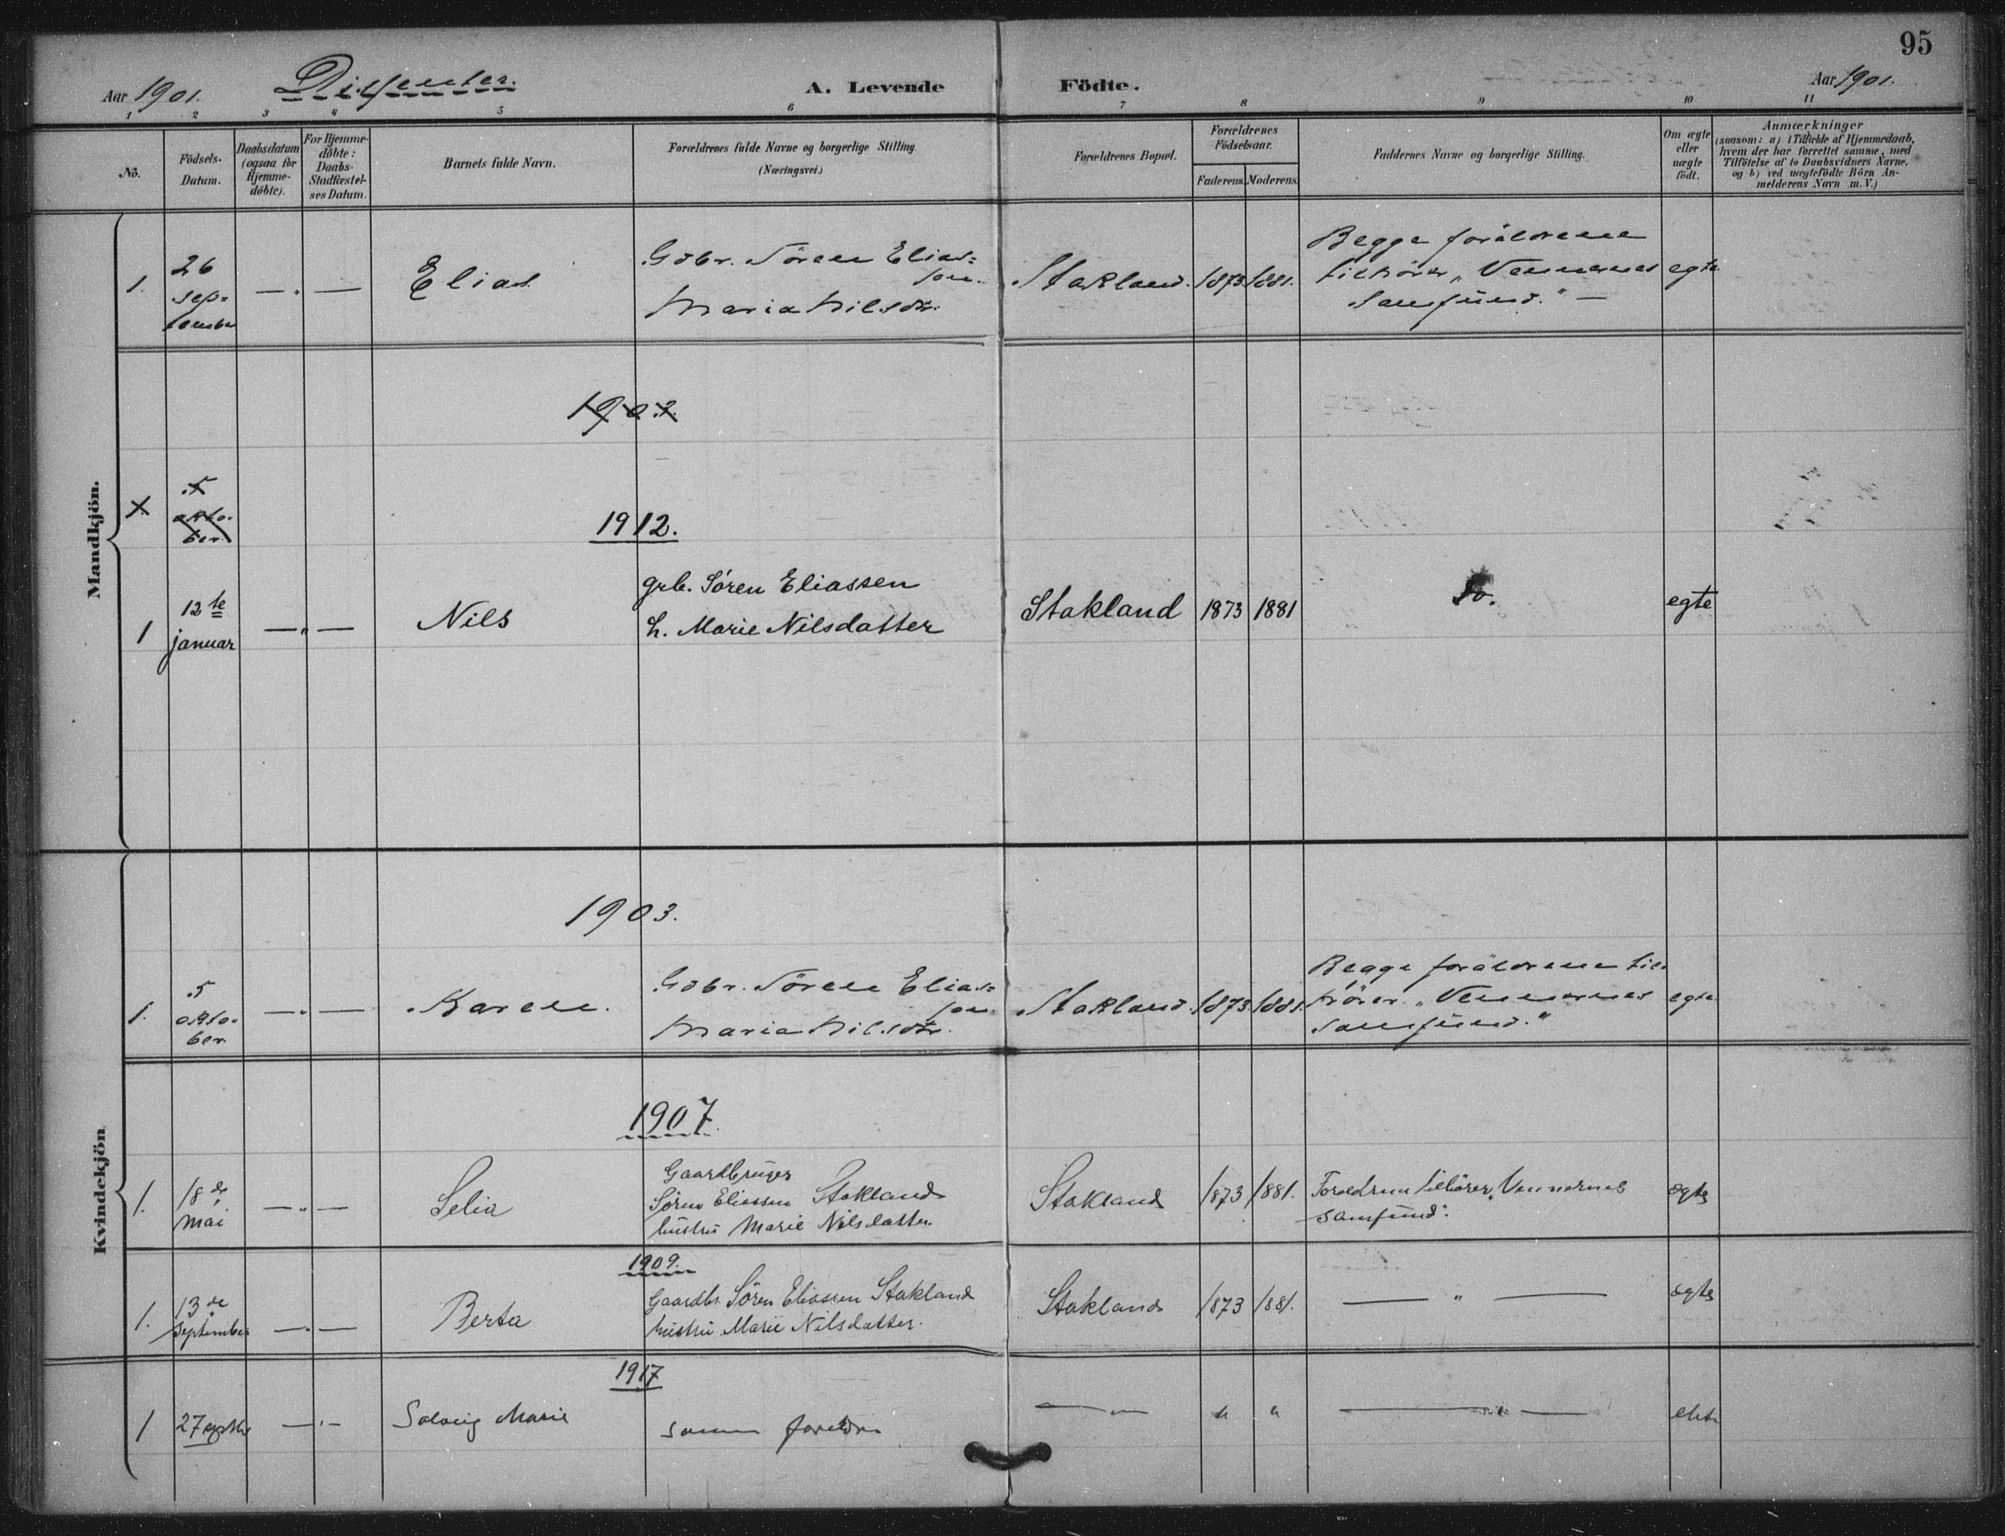 95
Aar 1901. Dissenter. A. Levende Födte. Aar 1901.
1 2 3 4 5 6 7 8 9 10 11
No.
Födsels-
Datum.
Daabsdatum
(ogsaa for
Hjemme-
döbte).
For Hjemme-
döbte:
Daabs-
Stadfæstel-
ses Datum.
Barnets fulde Navn.
Forældrenes fulde Navne og borgerlige Stilling.
(Næringsvei.)
Forældrenes Bopæl.
Forældrenes
Födselsaar.
Faderens. Moderens.
Faddernes Navne og borgerlige Stilling.
Om ægte
eller
uægte
födt.
Anmærkninger
(saasom: a) i Tilfælde af Hjemmedaab,
hvem der har forrettet samme, med
Tilföielse af to Daabsvidners Navne,
og b) ved uægtefödte Börn An-
melderens Navn m. V.)
Mandkjön.
1.
26
sep-
tember
— " —
Elias
Gdbr. Sören Elias=
sen.
Maria Nilsdtr.
Stakland. 1873 1881.
Begge forældrene
tilhörer „Vennernes
Samfund." —
egte
1902.
1.
5
okto-
ber.
1912.
1
12te
januar
— " —
Nils
grb. Søren Eliassen
h. Marie Nilsdatter
Stakland 1873 1881
Do.
egte
Kvindekjön
1903.
1.
5
okto-
ber.
— " —
Karen.
Gdbr. Sören Elias=
sen.
Maria Nilsdtr.
Stakland. 1873. 1881.
Begge forældrene til-
hörer „Vennernes
Samfund."
egte
1907.
1.
18de
mai
— " —
Selia
Gaardbruger
Søren Eliassen Stakland
hustru Marie Nilsdatter.
Stakland 1873 1881.
Foreldrene tilhører „Vennernes
samfund".
ægte
1909.
1.
13de
september
— " —
Berta
Gaardbr. Søren Eliassen Stakland
hustru Marie Nilsdatter.
Stakland 1873 1881.
— " —
ægte
1917
1
27
— " —
Solveig Marie
samme foreldre
— " — " " — " —
ekte